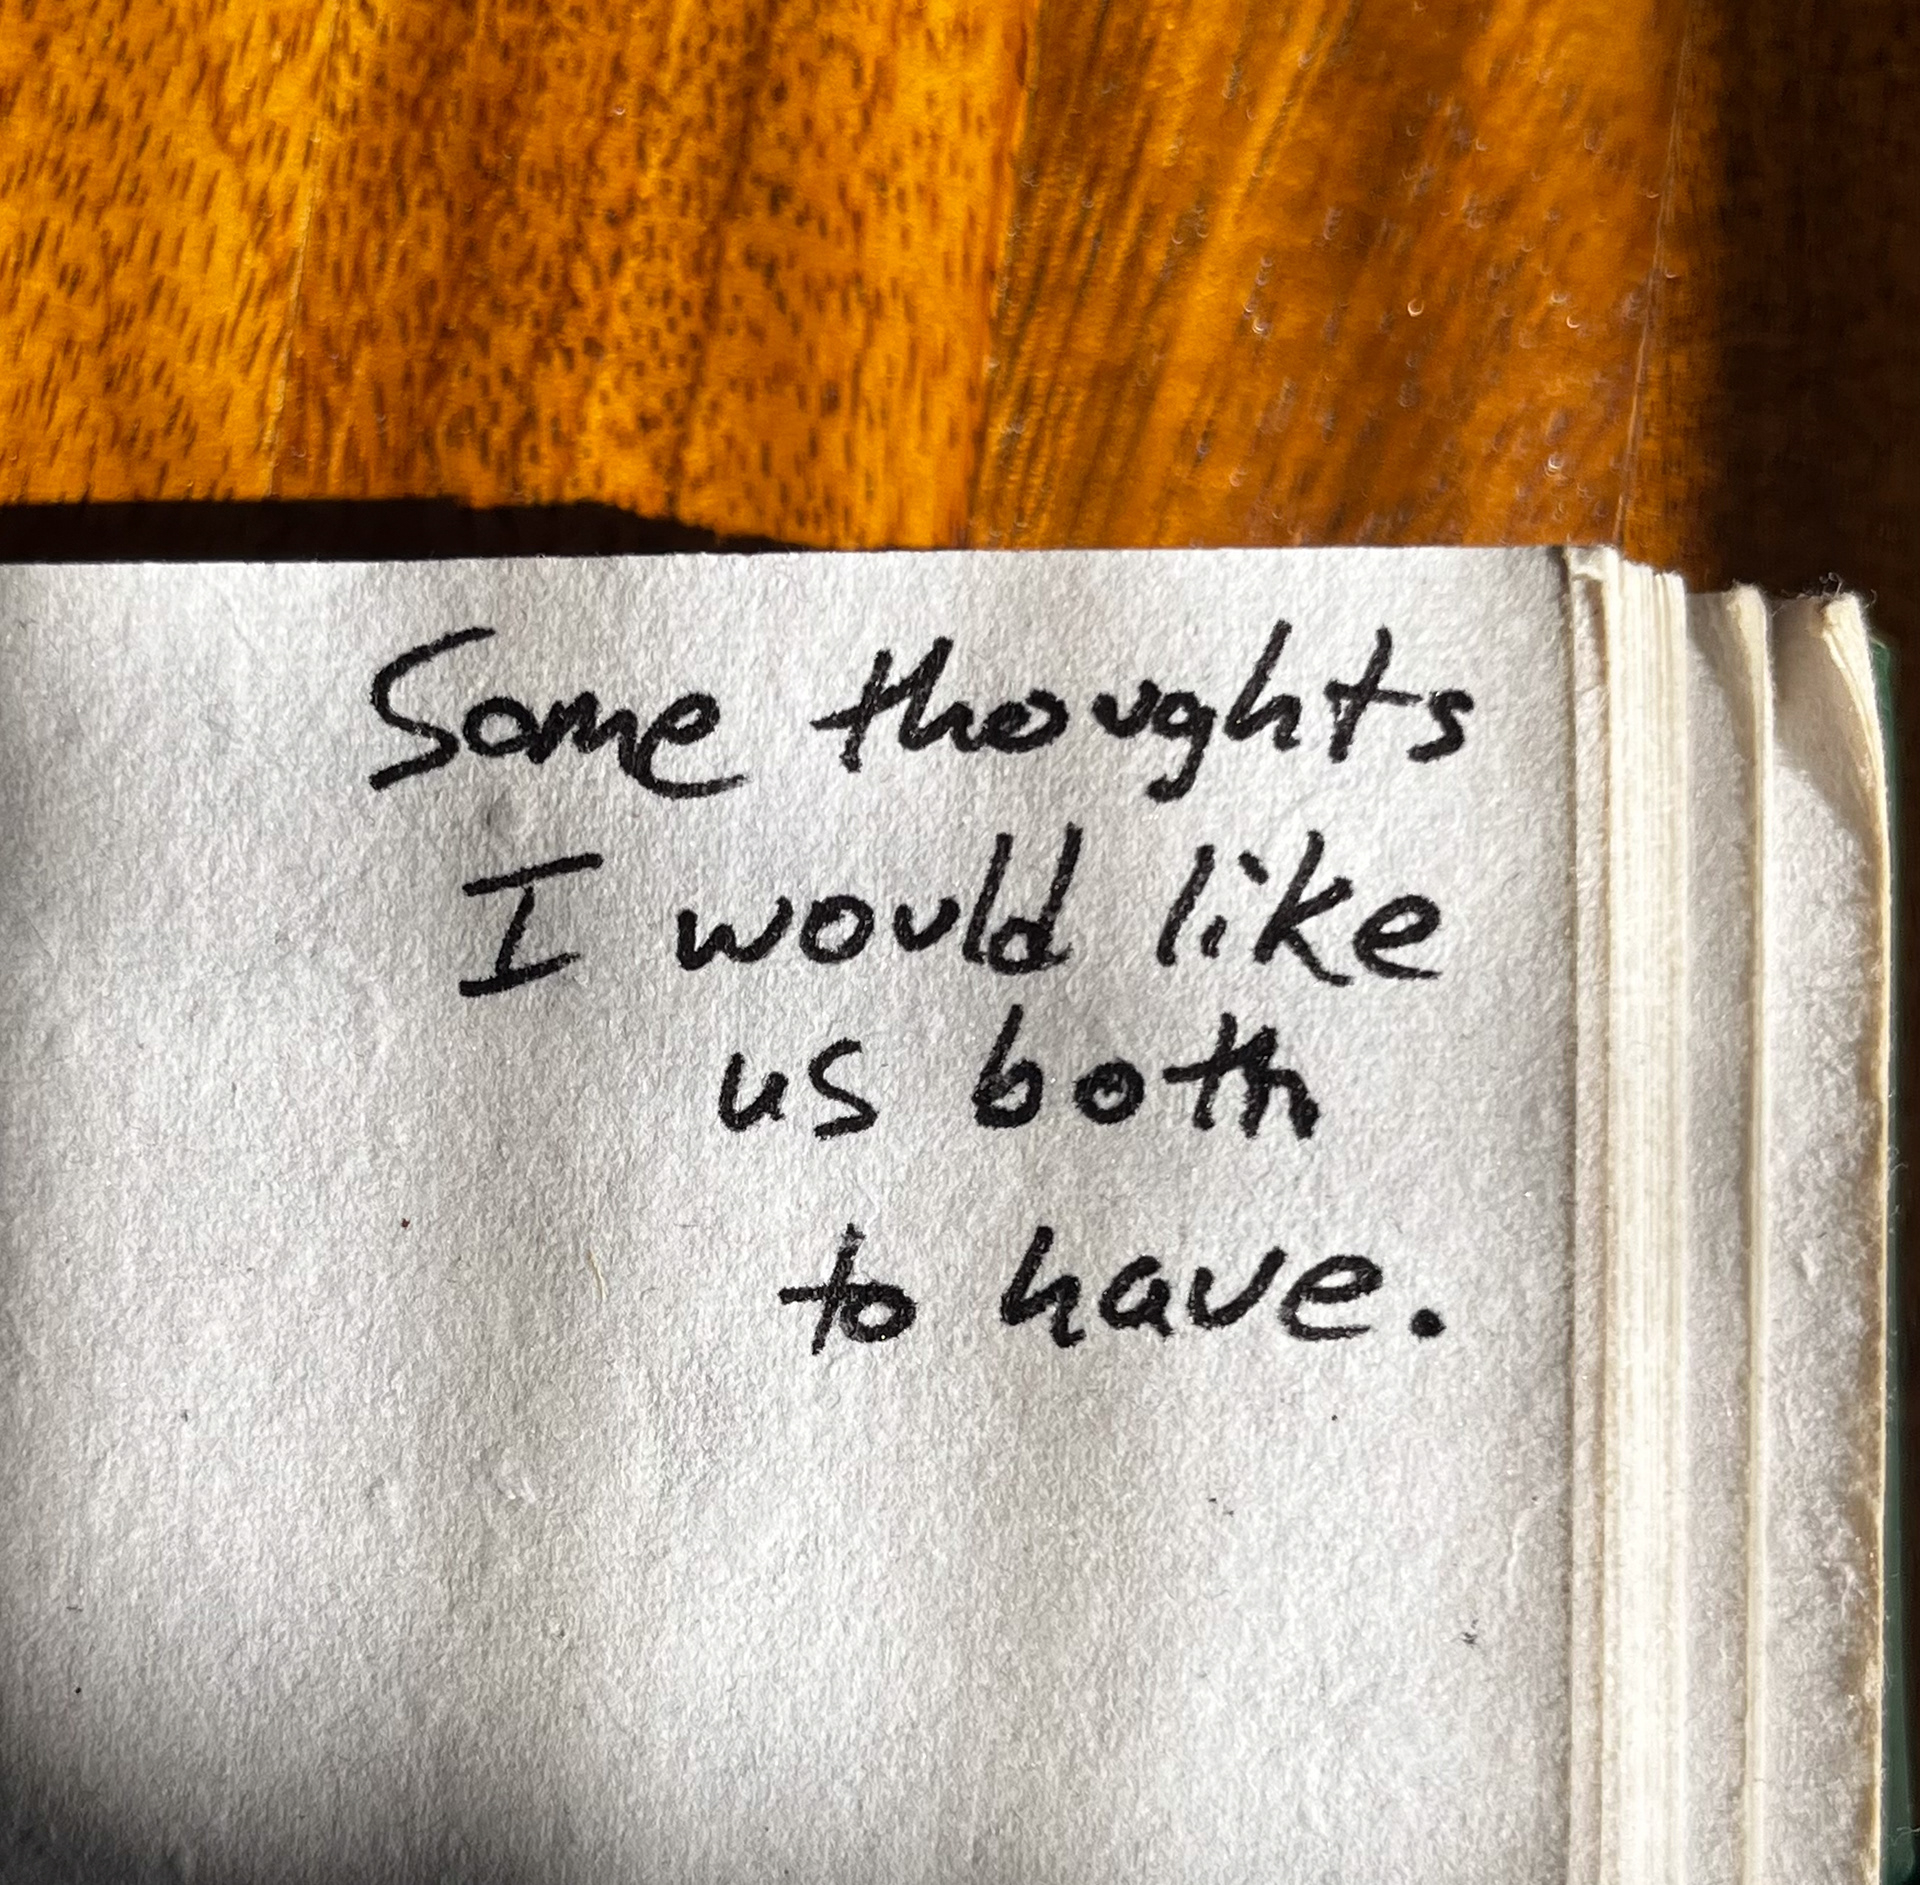 Some thoughts
I would like
us both
to have.